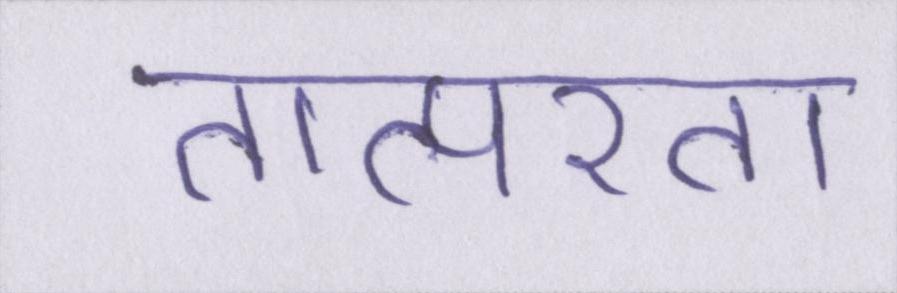 तात्परता